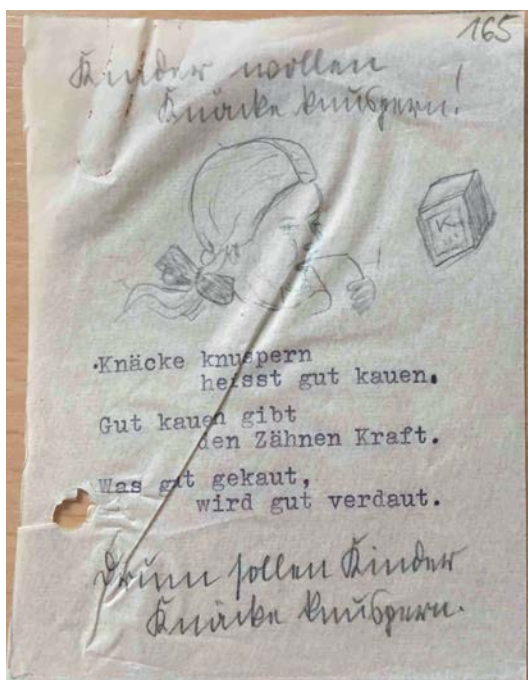 165
Kinder wollen
Knäcke knuspern!
K
Knäcke knuspern
heisst gut kauen.
Gut kauen gibt
den Zähnen Kraft.
Was gut gekaut,
wird gut verdaut.
Drum sollen Kinder
Knäcke knuspern.